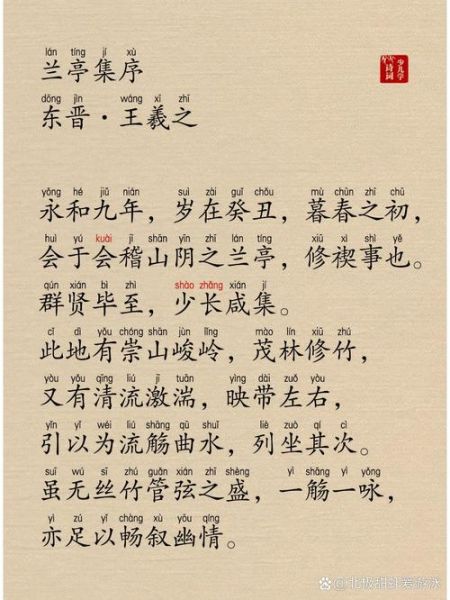 lán tíng jí xù
兰亭集序
少儿学
诗词
dōng jìn wáng xī zhī
东晋·王羲之
yǒng hé jiǔ nián suì zài guǐ chǒu mù chūn zhī chū
永和九年，岁在癸丑，暮春之初，
huì yú kuài jī shān yīn zhī lán tíng xiū xì shì yě
会于会稽山阴之兰亭，修禊事也。
qún xián bì zhì shào zhǎng xián jí
群贤毕至，少长咸集。
cǐ dì yǒu chóng shān jùn lǐng mào lín xiū zhú
此地有崇山峻岭，茂林修竹，
yòu yǒu qīng liú jī tuān yìng dài zuǒ yòu
又有清流激湍，映带左右，
yǐn yǐ wéi liú shāng qū shuǐ liè zuò qí cì
引以为流觞曲水，列坐其次。
suī wú sī zhú guǎn xián zhī shèng yì shāng yì yǒng
虽无丝竹管弦之盛，一觞一咏，
yì zú yǐ chàng xù yōu qíng
亦足以畅叙幽情。